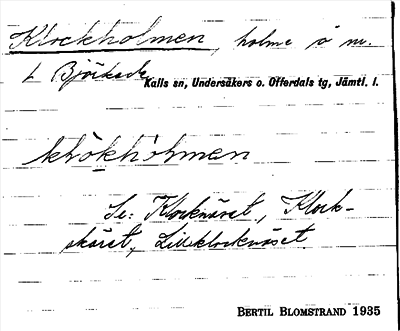 Klockholmen, holme o nr.
t Björkede
Kalls sn, Undersåkers o. Offerdals tg, Jämtl. l.
klòkhòlmen
Se: Klocknäset, Klock-
skäret, Lilleklocknäset.
BERTIL BLOMSTRAND 1935